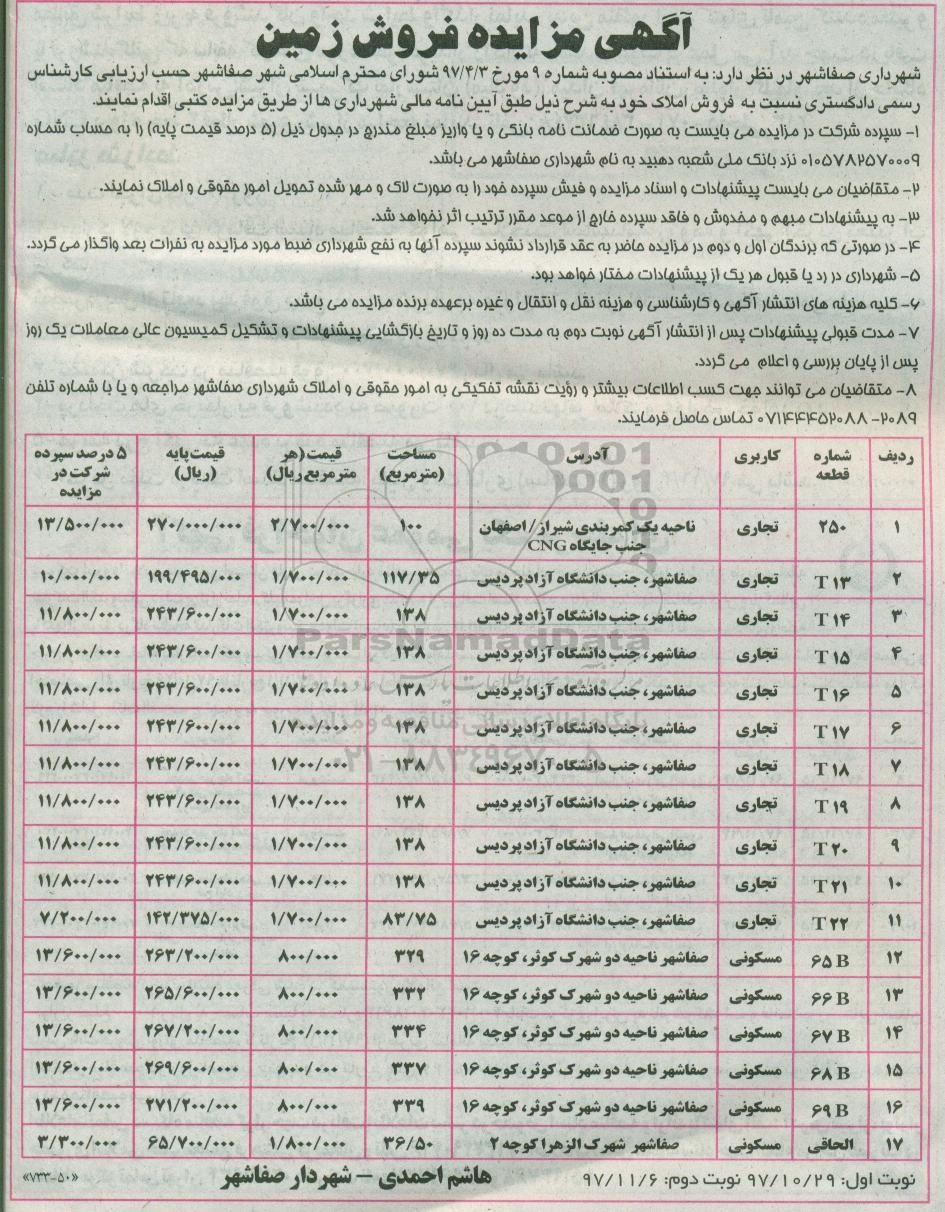 آگهی مزایده فروش زمین
شهرداری صفاشهر در نظر دارد: به استناد مصوبه شماره ۹ مورخ ۹۷/۴/۳ شورای محترم اسلامی شهر صفاشهر حسب ارزیابی کارشناس
رسمی دادگستری نسبت به فروش املاک خود به شرح ذیل طبق آیین نامه مالی شهرداری ها از طریق مزایده کتبی اقدام نمایند.
۱- سپرده شرکت در مزایده می بایست به صورت ضمانت نامه بانکی و یا واریز مبلغ مندرج در جدول ذیل (۵ درصد قیمت پایه) را به حساب شماره
۰۱۰۵۷۸۲۵۷۰۰۰۹ نزد بانک ملی شعبه دهبید به نام شهرداری صفاشهر می باشد.
۲- متقاضیان می بایست پیشنهادات و اسناد مزایده و فیش سپرده خود را به صورت لاک و مهر شده تحویل امور حقوقی و املاک نمایند.
۳- به پیشنهادات مبهم و مخدوش و فاقد سپرده خارج از موعد مقرر ترتیب اثر نخواهد شد.
۴- در صورتی که برندگان اول و دوم در مزایده حاضر به عقد قرارداد نشوند سپرده آنها به نفع شهرداری ضبط مورد مزایده به نفرات بعد واگذار می گردد.
۵- شهرداری در رد یا قبول هر یک از پیشنهادات مختار خواهد بود.
۶- کلیه هزینه های انتشار آگهی و کارشناسی و هزینه نقل و انتقال و غیره برعهده برنده مزایده می باشد.
۷- مدت قبولی پیشنهادات پس از انتشار آگهی نوبت دوم به مدت ده روز و تاریخ بازگشایی پیشنهادات و تشکیل کمیسیون عالی معاملات یک روز
پس از پایان بررسی و اعلام می گردد.
۸- متقاضیان می توانند جهت کسب اطلاعات بیشتر و رؤیت نقشه تفکیکی به امور حقوقی و املاک شهرداری صفاشهر مراجعه و یا با شماره تلفن
۲۰۸۹-۰۷۱۴۴۴۵۲۰۸۸ تماس حاصل فرمایند.
ردیف شماره قطعه کاربری آدرس مساحت (مترمربع) قیمت (هر مترمربع ریال) قیمت پایه (ریال) ۵ درصد سپرده شرکت در مزایده
۱ ۲۵۰ تجاری ناحیه یک کمربندی شیراز/ اصفهان جنب جایگاه CNG ۱۰۰ ۲/۷۰۰/۰۰۰ ۲۷۰/۰۰۰/۰۰۰ ۱۳/۵۰۰/۰۰۰
۲ T ۱۳ تجاری صفاشهر، جنب دانشگاه آزاد پردیس ۱۱۷/۳۵ ۱/۷۰۰/۰۰۰ ۱۹۹/۴۹۵/۰۰۰ ۱۰/۰۰۰/۰۰۰
۳ T ۱۴ تجاری صفاشهر، جنب دانشگاه آزاد پردیس ۱۳۸ ۱/۷۰۰/۰۰۰ ۲۴۳/۶۰۰/۰۰۰ ۱۱/۸۰۰/۰۰۰
۴ T ۱۵ تجاری صفاشهر، جنب دانشگاه آزاد پردیس ۱۳۸ ۱/۷۰۰/۰۰۰ ۲۴۳/۶۰۰/۰۰۰ ۱۱/۸۰۰/۰۰۰
۵ T ۱۶ تجاری صفاشهر، جنب دانشگاه آزاد پردیس ۱۳۸ ۱/۷۰۰/۰۰۰ ۲۴۳/۶۰۰/۰۰۰ ۱۱/۸۰۰/۰۰۰
۶ T ۱۷ تجاری صفاشهر، جنب دانشگاه آزاد پردیس ۱۳۸ ۱/۷۰۰/۰۰۰ ۲۴۳/۶۰۰/۰۰۰ ۱۱/۸۰۰/۰۰۰
۷ T ۱۸ تجاری صفاشهر، جنب دانشگاه آزاد پردیس ۱۳۸ ۱/۷۰۰/۰۰۰ ۲۴۳/۶۰۰/۰۰۰ ۱۱/۸۰۰/۰۰۰
۸ T ۱۹ تجاری صفاشهر، جنب دانشگاه آزاد پردیس ۱۳۸ ۱/۷۰۰/۰۰۰ ۲۴۳/۶۰۰/۰۰۰ ۱۱/۸۰۰/۰۰۰
۹ T ۲۰ تجاری صفاشهر، جنب دانشگاه آزاد پردیس ۱۳۸ ۱/۷۰۰/۰۰۰ ۲۴۳/۶۰۰/۰۰۰ ۱۱/۸۰۰/۰۰۰
۱۰ T ۲۱ تجاری صفاشهر، جنب دانشگاه آزاد پردیس ۱۳۸ ۱/۷۰۰/۰۰۰ ۲۴۳/۶۰۰/۰۰۰ ۱۱/۸۰۰/۰۰۰
۱۱ T ۲۲ تجاری صفاشهر، جنب دانشگاه آزاد پردیس ۸۳/۷۵ ۱/۷۰۰/۰۰۰ ۱۴۲/۳۷۵/۰۰۰ ۷/۲۰۰/۰۰۰
۱۲ ۶۵ B مسکونی صفاشهر ناحیه دو شهرک کوثر، کوچه ۱۶ ۳۲۹ ۸۰۰/۰۰۰ ۲۶۳/۲۰۰/۰۰۰ ۱۳/۶۰۰/۰۰۰
۱۳ ۶۶ B مسکونی صفاشهر ناحیه دو شهرک کوثر، کوچه ۱۶ ۳۳۲ ۸۰۰/۰۰۰ ۲۶۵/۶۰۰/۰۰۰ ۱۳/۶۰۰/۰۰۰
۱۴ ۶۷ B مسکونی صفاشهر ناحیه دو شهرک کوثر، کوچه ۱۶ ۳۳۴ ۸۰۰/۰۰۰ ۲۶۷/۲۰۰/۰۰۰ ۱۳/۶۰۰/۰۰۰
۱۵ ۶۸ B مسکونی صفاشهر ناحیه دو شهرک کوثر، کوچه ۱۶ ۳۳۷ ۸۰۰/۰۰۰ ۲۶۹/۶۰۰/۰۰۰ ۱۳/۶۰۰/۰۰۰
۱۶ ۶۹ B مسکونی صفاشهر ناحیه دو شهرک کوثر، کوچه ۱۶ ۳۳۹ ۸۰۰/۰۰۰ ۲۷۱/۲۰۰/۰۰۰ ۱۳/۶۰۰/۰۰۰
۱۷ الحاقی مسکونی صفاشهر شهرک الزهرا کوچه ۲ ۳۶/۵۰ ۱/۸۰۰/۰۰۰ ۶۵/۷۰۰/۰۰۰ ۳/۳۰۰/۰۰۰
نوبت اول: ۹۷/۱۰/۲۹ نوبت دوم: ۹۷/۱۱/۶ هاشم احمدی - شهردار صفاشهر «۷۳۳-۵۰»
ParsNamadData
۰۲۱-۸۸۳۴۹۶۷۰-۵